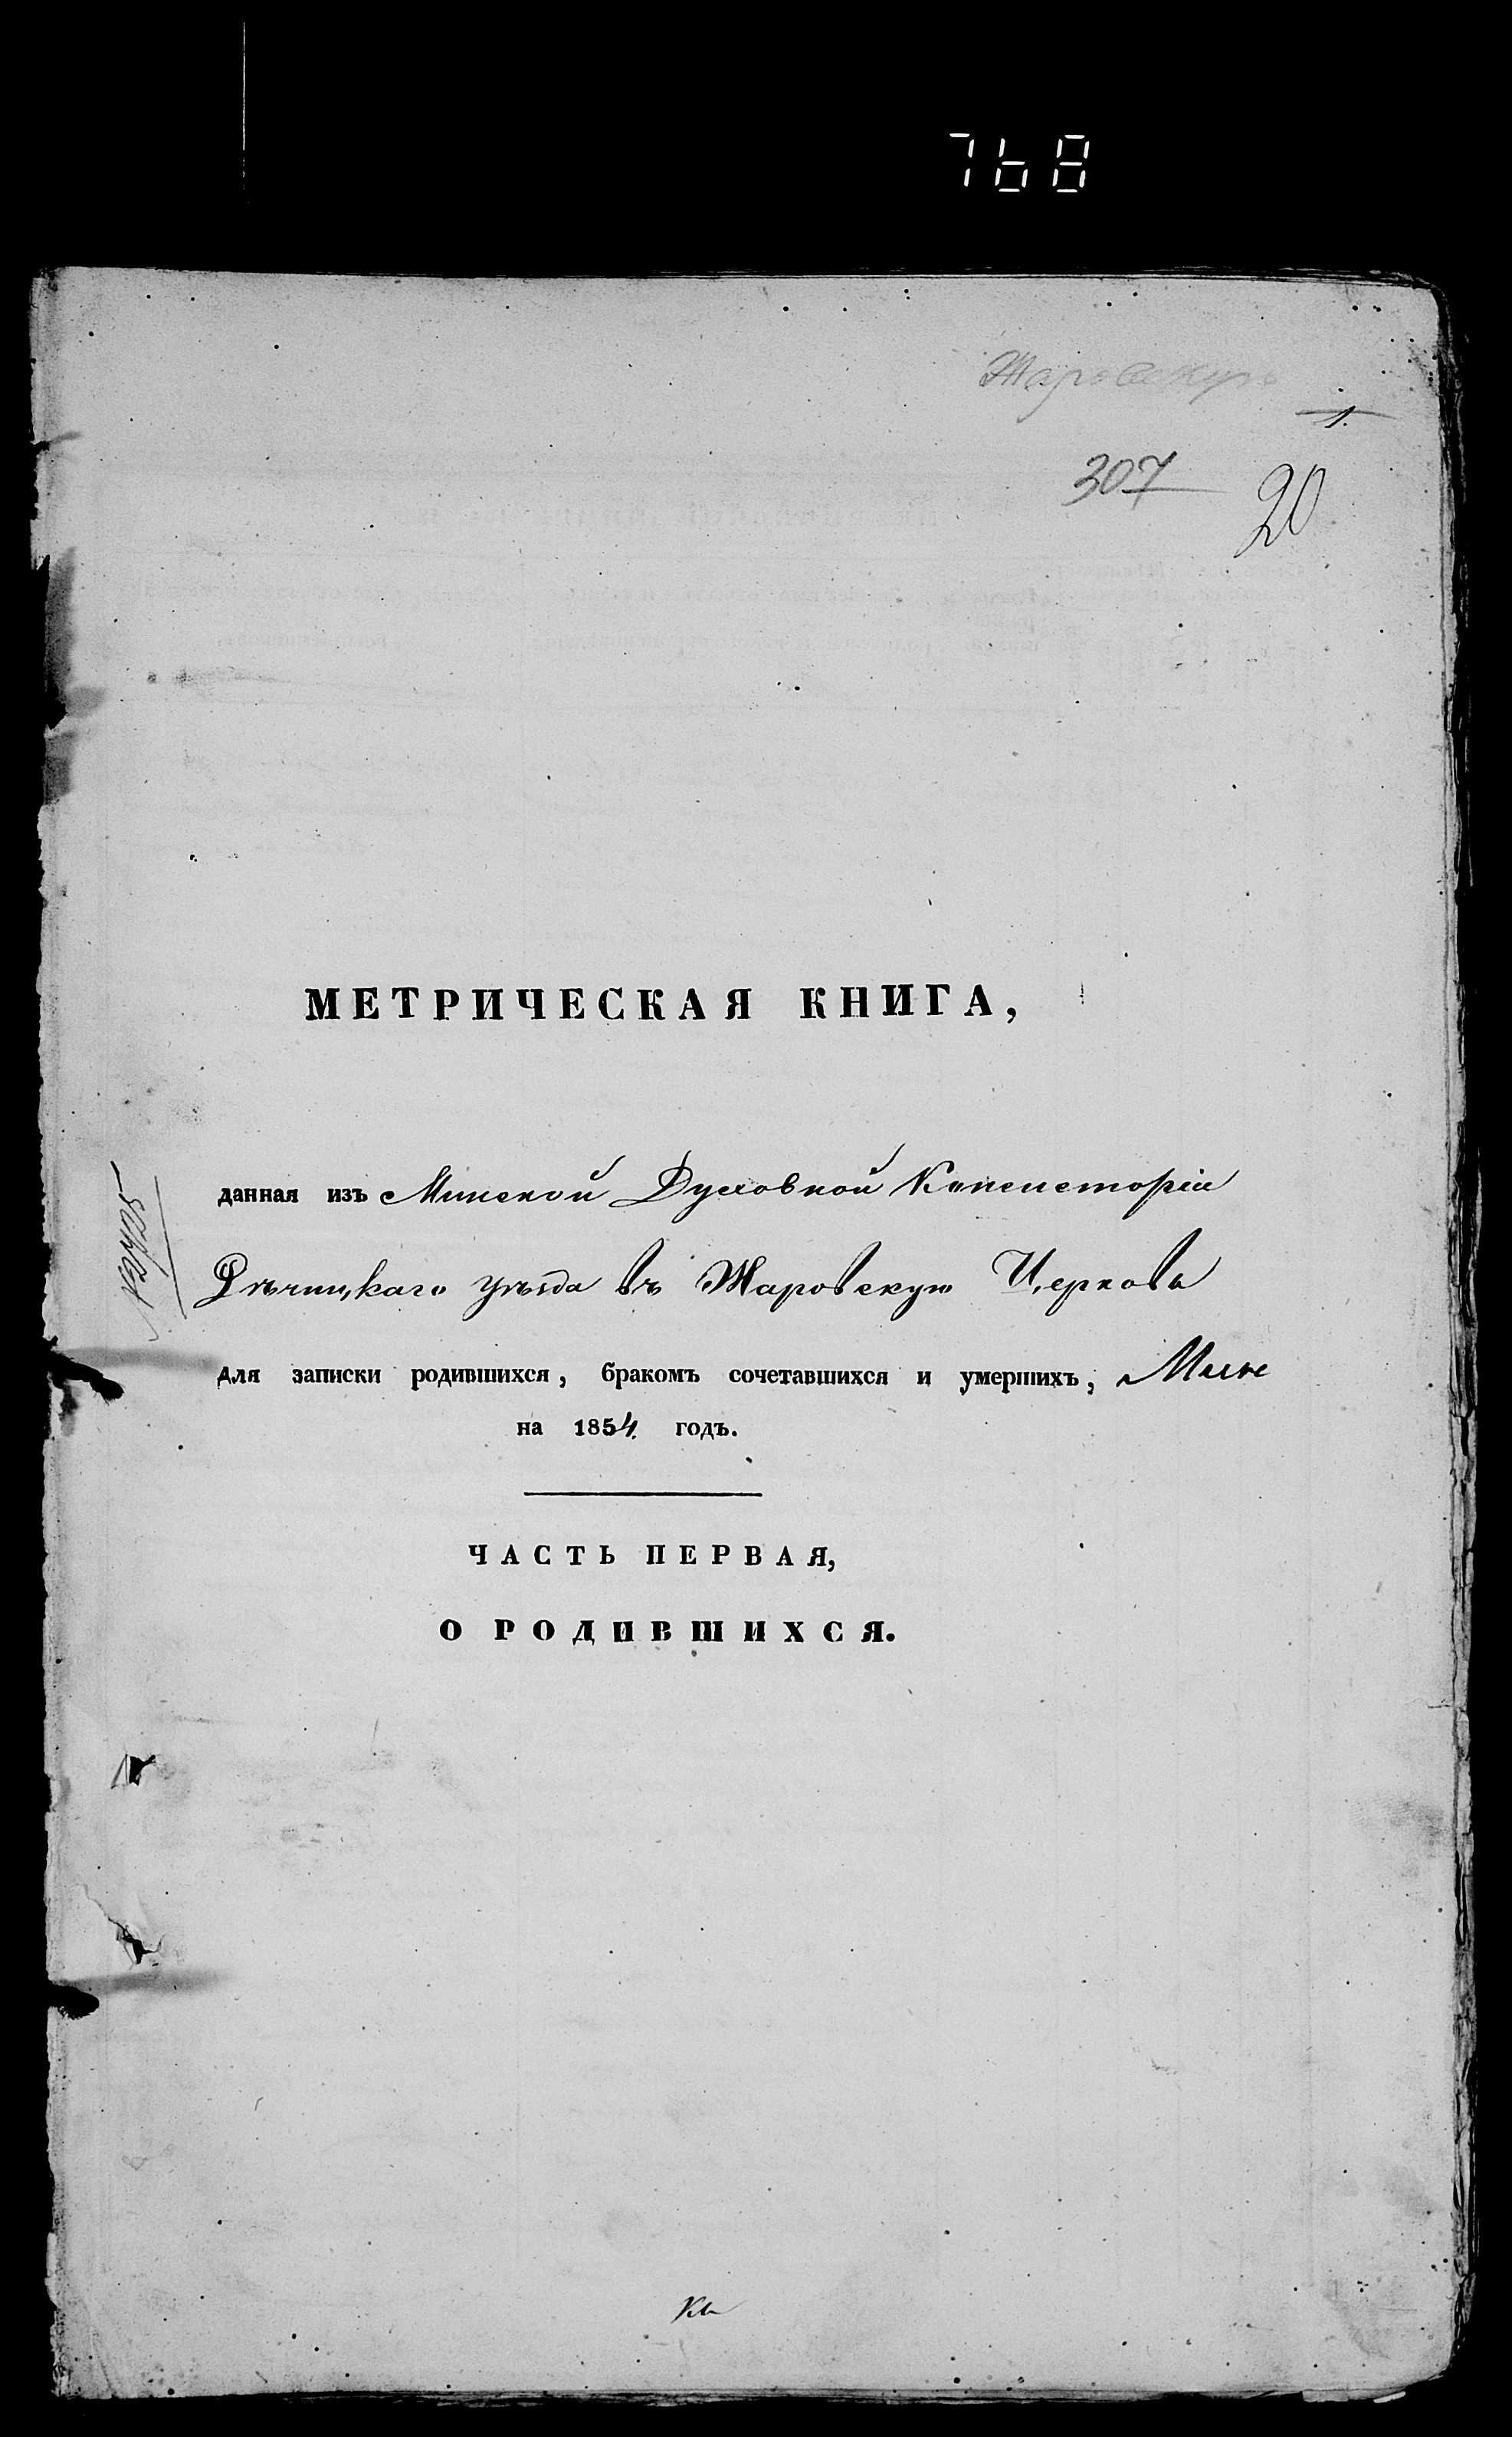 768
Жаровскую
1.
307
20
МЕТРИЧЕСКАЯ КНИГА,
данная изъ Минской Духовной Консисторіи
Рѣчицкаго уѣзда въ Жаровскую Церковь
для записки родившихся, бракомъ сочетавшихся и умершихъ,
на 1854 годъ.
ЧАСТЬ ПЕРВАЯ,
О РОДИВШИХСЯ.